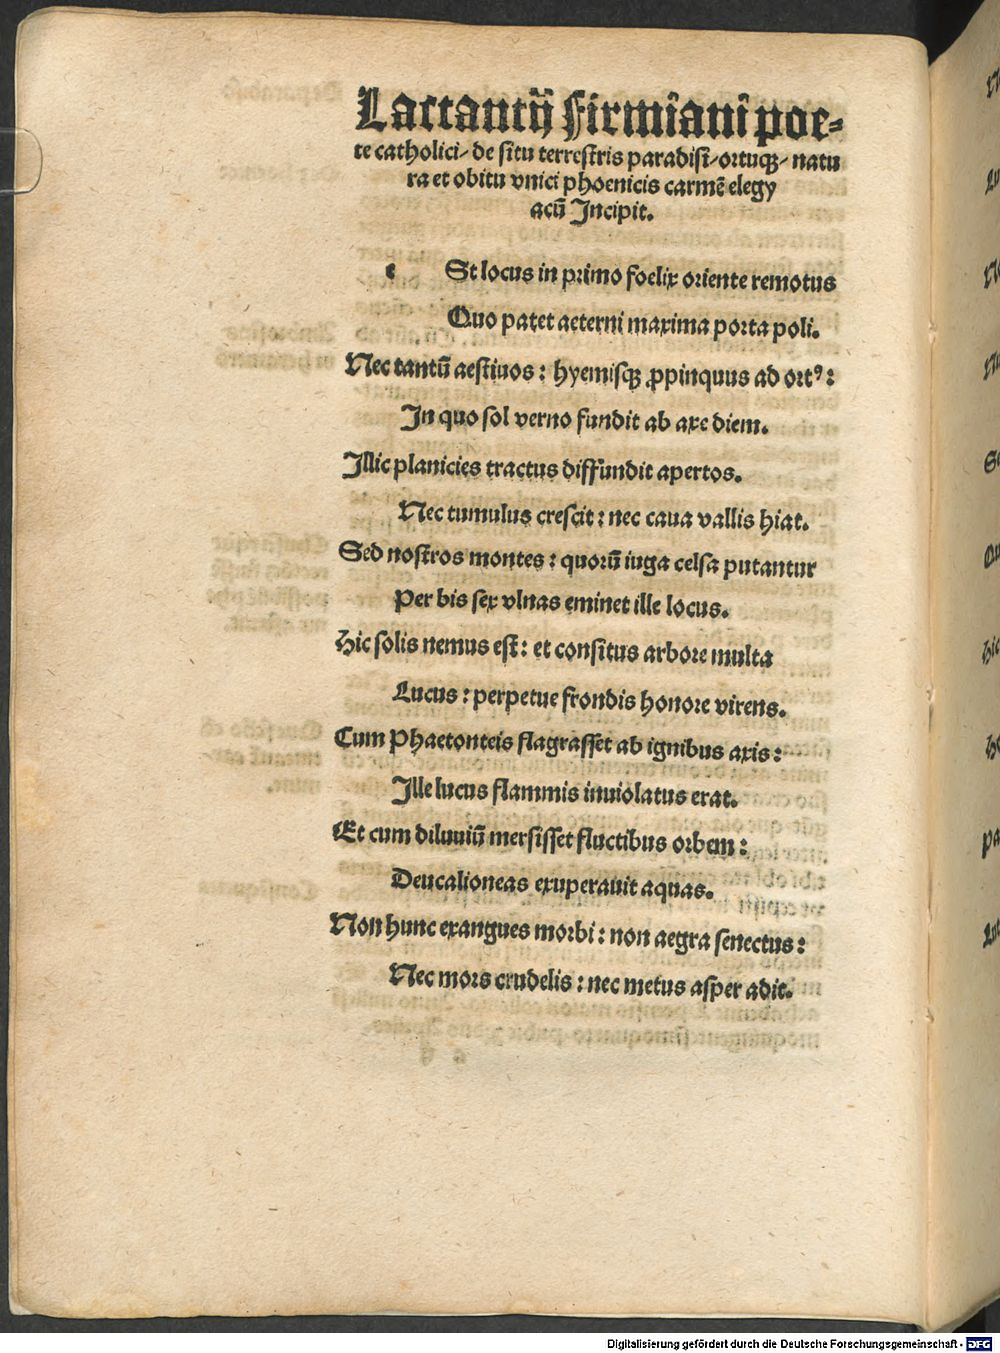 Lactantij Firmiani poe-
te catholici/ de situ terrestris paradisi/ ortuqꝫ/ natu
ra et obitu vnici phoenicis carmē elegy
acū Incipit.
e St locus in primo foelix oriente remotus
Quo patet aeterni maxima porta poli.
Nec tantū aestiuos: hyemisqꝫ ꝓpinquus ad ortꝰ:
In quo sol verno fundit ab axe diem.
Illic planicies tractus diffundit apertos.
Nec tumulus crescit: nec caua vallis hiat.
Sed nostros montes: quorū iuga celsa putantur
Per bis sex vlnas eminet ille locus.
Hic solis nemus est: et consitus arbore multa
Lucus: perpetue frondis honore virens.
Cum Phaetonteis flagrasset ab ignibus axis:
Ille lucus flammis inuiolatus erat.
Et cum diluuiū mersisset fluctibus orbem:
Deucalioneas exuperauit aquas.
Non hunc exangues morbi: non aegra senectus:
Nec mors crudelis: nec metus asper adit.
Digitalisierung gefördert durch die Deutsche Forschungsgemeinschaft - DFG